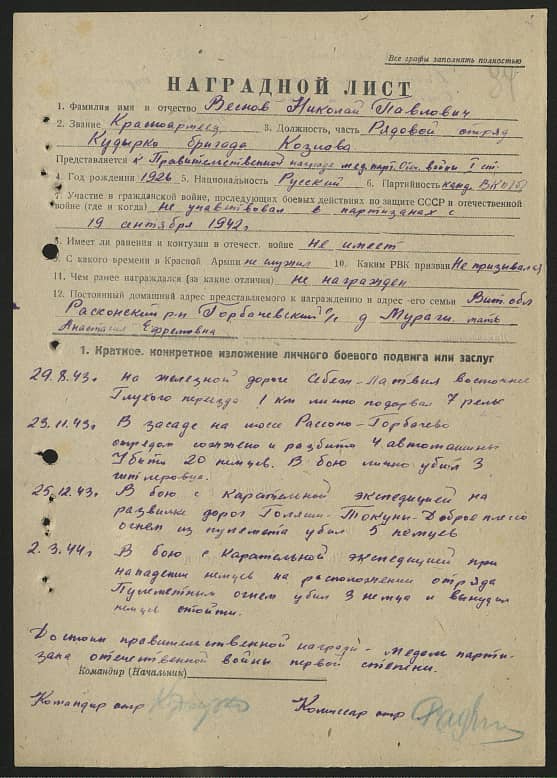 Все графы заполнять полностью
НАГРАДНОЙ ЛИСТ
1. Фамилия имя и отчество Веснов Николай Павлович
2. Звание Красноармеец 3. Должность, часть Рядовой отряд
Кудырко бригада Козлова
Представляется к Правительственной награде мед. парт. Отч. войны I ст.
4. Год рождения 1926 5. Национальность Русский 6. Партийность канд. ВКП(б)
7. Участие в гражданской войне, последующих боевых действиях по защите СССР в отечественной
войне (где и когда) не участвовал в партизанах с
19 сентября 1942 г.
8. Имеет ли ранения и контузии в отечест. войне не имеет
9. С какого времени в Красной Армии не служил 10. Каким РВК призван Не призывался
11. Чем ранее награждался (за какие отличия) не награжден
12. Постоянный домашний адрес представляемого к награждению и адрес его семьи Вит. обл
Расонский р-н Горбачевский с/с д Мураги. мать
Анастасия Ефремовна
1. Краткое, конкретное изложение личного боевого подвига или заслуг
29.8.43г На железной дороге Себеж-Латвия восточнее
Глухого переезда 1 км лично подорвал 7 рельс
23.11.43г В засаде на шосе Россоно-Горбачево
отрядом сожжено и разбито 4 автомашины
Убыто 20 немцев. В бою лично убил 3
гитлеровца.
25.12.43г. В бою с карательной экспедицией на
развилки дорог Голяши-Токуни-Доброе плесо
огнем из пулемета убил 5 немцев
2.3.44г В бою с карательной экспедицией при
нападении немцев на расположении отряда
Пулеметным огнем убил 3 немца и вынудил
немцев отойти.
Достоин правительственной награды - Медали парти-
зана отечественной войны первой степени.
Командир (Начальник)
Командир отр
Комиссар отр